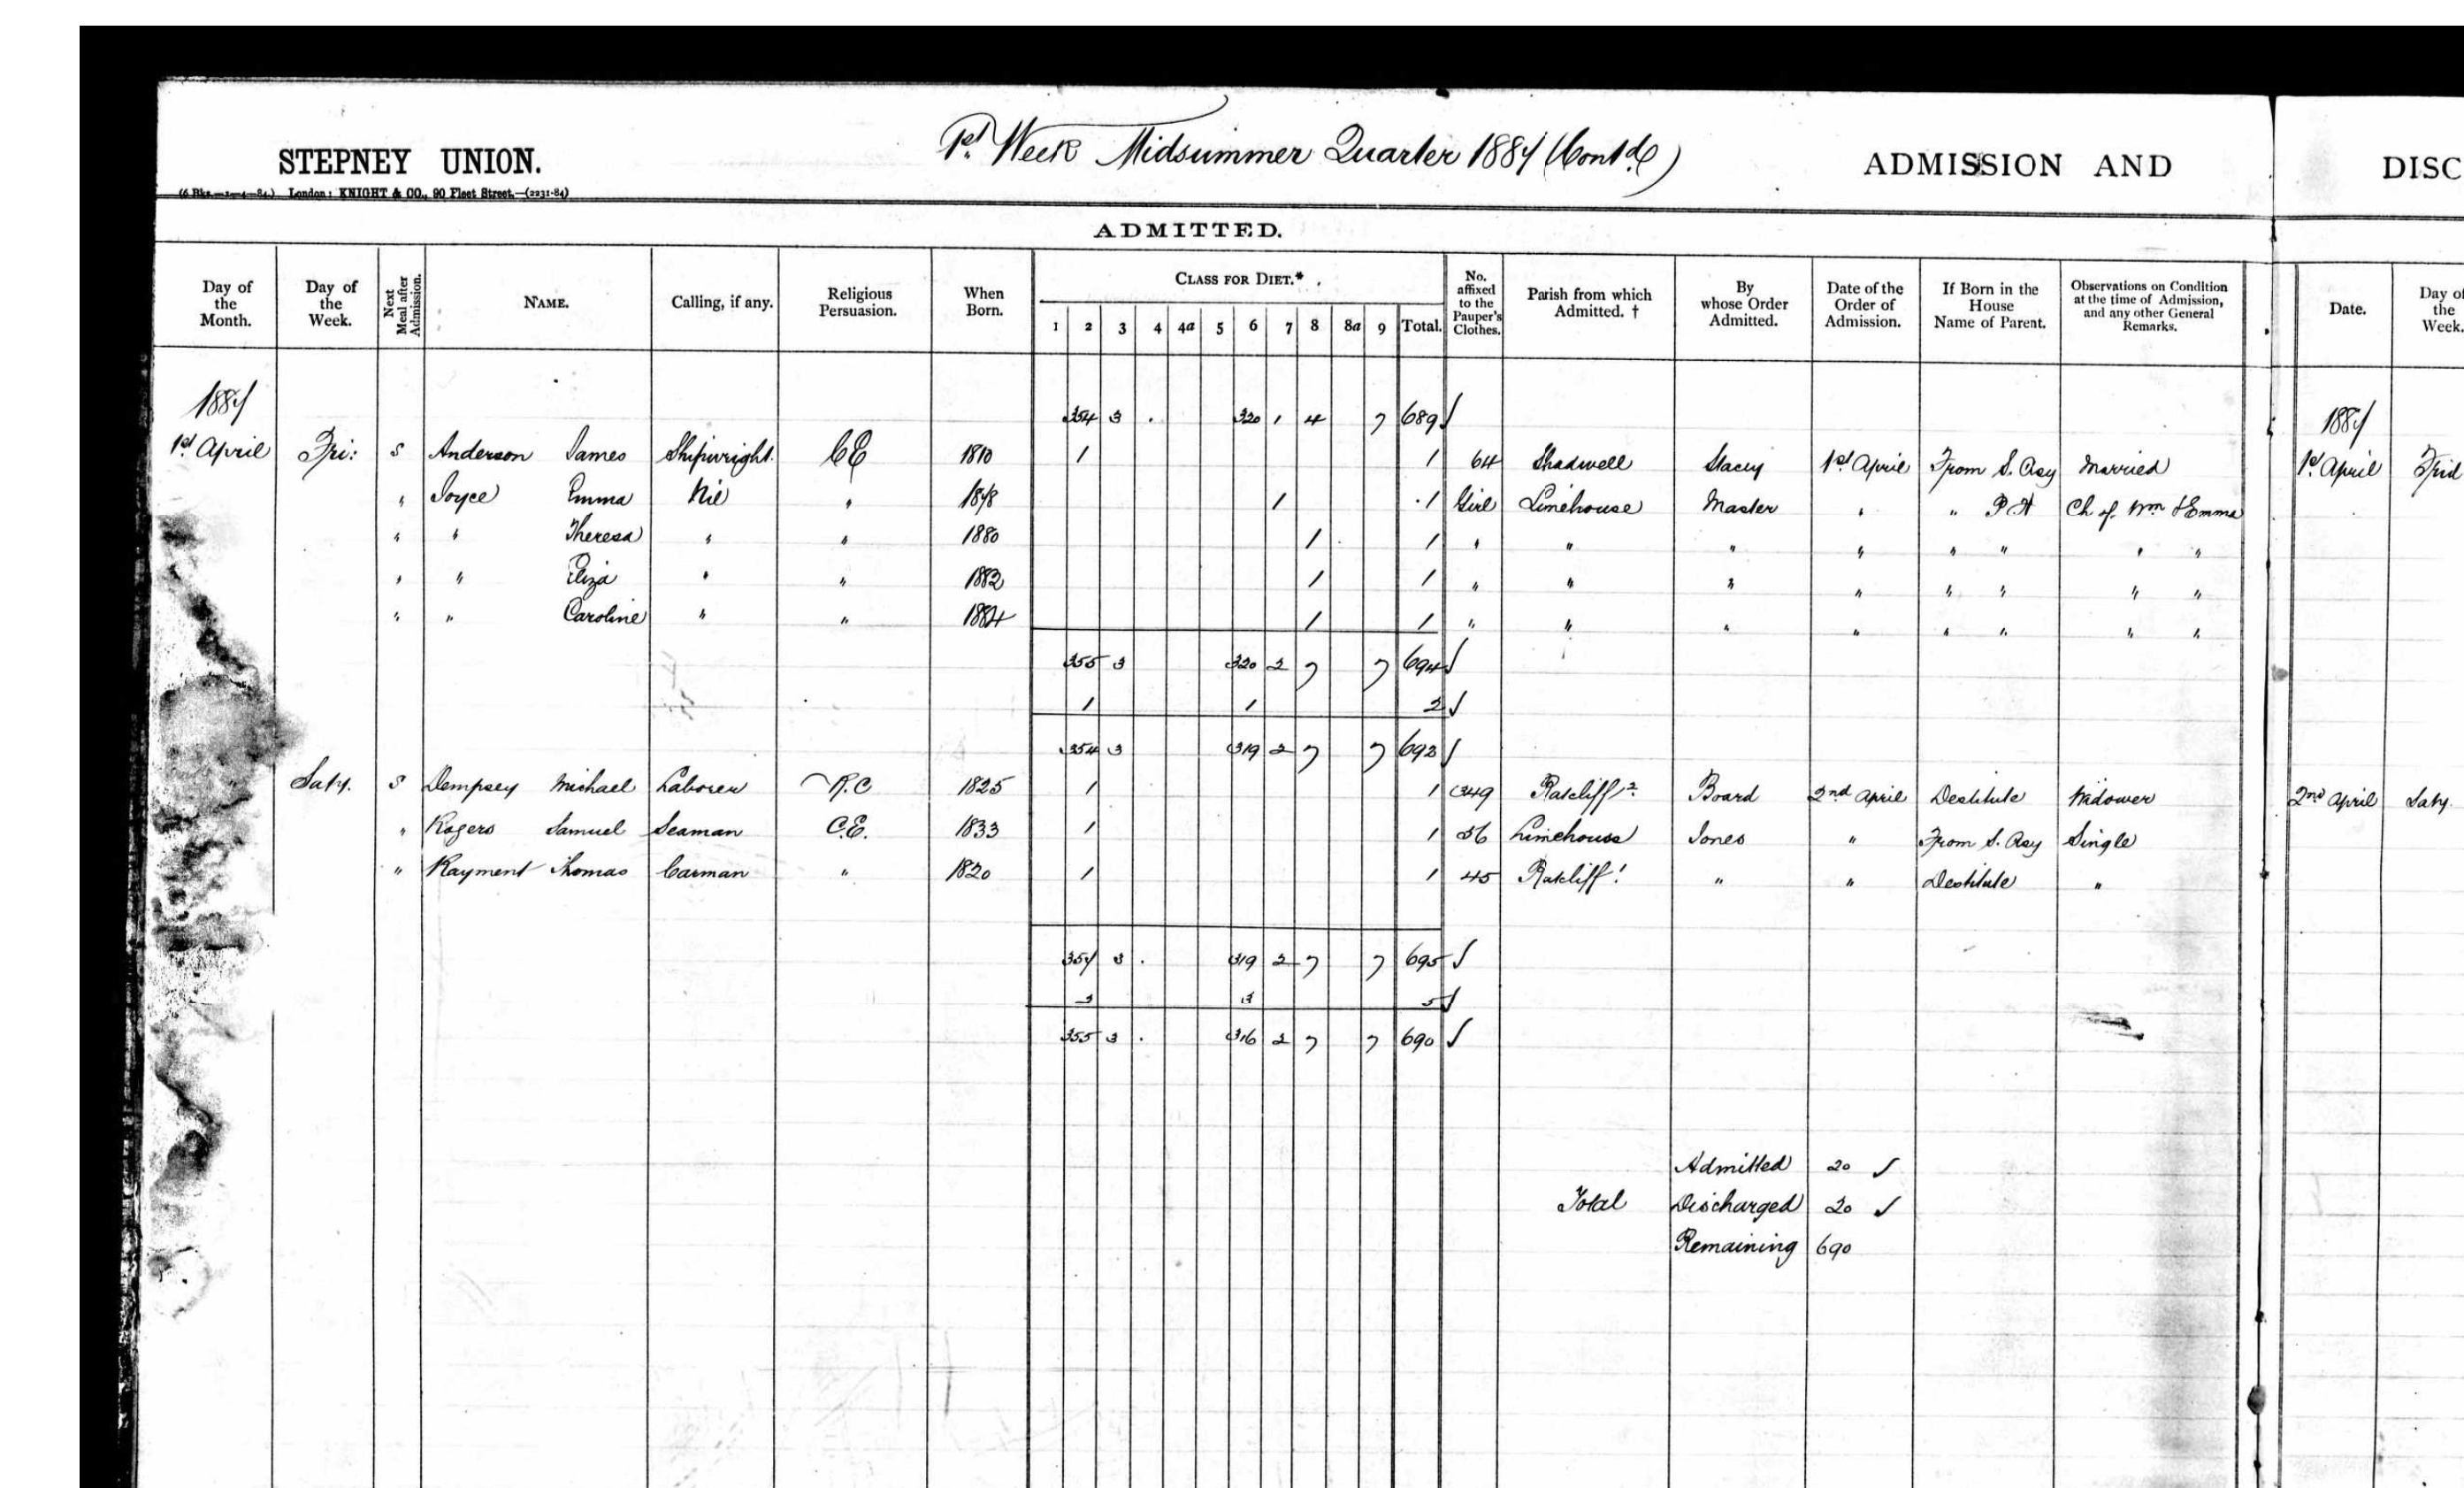 STEPNEY UNION.
(6 Bks.—1—4—84.) London: KNIGHT & CO., 90 Fleet Street.—(2231-84)
1st Week Midsummer Quarter 1887 (Contd)
ADMISSION AND DISC
ADMITTED.
Day of the Month. Day of the Week. Next Meal after Admission. NAME. Calling, if any. Religious Persuasion. When Born. CLASS FOR DIET.* No. affixed to the Pauper's Clothes. Parish from which Admitted. † By whose Order Admitted. Date of the Order of Admission. If Born in the House Name of Parent. Observations on Condition at the time of Admission, and any other General Remarks. Date. Day of the Week.
1 2 3 4 4a 5 6 7 8 8a 9 Total.
1887 354 3 . 320 1 4 7 689 ✓ 1887
1st April Fri: S Anderson James Shipwright. CE 1810 1 1 64 Shadwell Stacey 1st April From S. Asy Married 1st April Frid
" Joyce Emma Nil " 1878 1 1 Girl Limehouse Master " " P H Ch of Wm & Emma
" " Theresa " " 1880 1 1 " " " " " " " "
" " Eliza " " 1882 1 1 " " " " " " " "
" " Caroline " " 1884 1 1 " " " " " " " "
355 3 320 2 7 7 694 ✓
1 1 2 ✓
354 3 319 2 7 7 692 ✓
Saty. S Dempsey Michael Laborer R.C 1825 1 1 349 Ratcliff 2 Board 2nd April Destitute Widower 2nd April Saty.
" Rogers Samuel Seaman C.E. 1833 1 1 36 Limehouse Jones " From S. Asy Single
" Rayment Thomas Carman " 1820 1 1 45 Ratcliff 1 " " Destitute "
357 3 . 319 2 7 7 695 ✓
2 3 5 ✓
355 3 . 316 2 7 7 690 ✓
Admitted 20 ✓
Total Discharged 20 ✓
Remaining 690